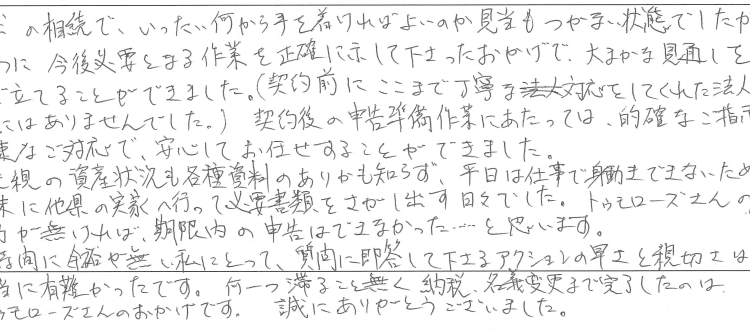 の相続で、いったい何から手を着ければよいのか見当もつかない状態でしたが
つに今後必要となる作業を正確に示して下さったおかげで、大まかな見通しを
立てることができました。(契約前にここまで丁寧な対応をしてくれた法人
にはありませんでした。) 契約後の申告準備作業にあたっては、的確なご指示
速なご対応で、安心してお任せすることができました。
親の資産状況も各種資料のありかも知らず、平日は仕事で身動きできないため
末に他県の実家へ行って必要書類をさがし出す日々でした。トゥモローズさんの
が無ければ、期限内の申告はできなかった……と思います。
時間に余裕が無い私にとって、質問に即答して下さるアクションの早さと親切さは
当に有難かったです。何一つ滞ること無く納税、名義変更まで完了したのは、
トゥモローズさんのおかげです。誠にありがとうございました。